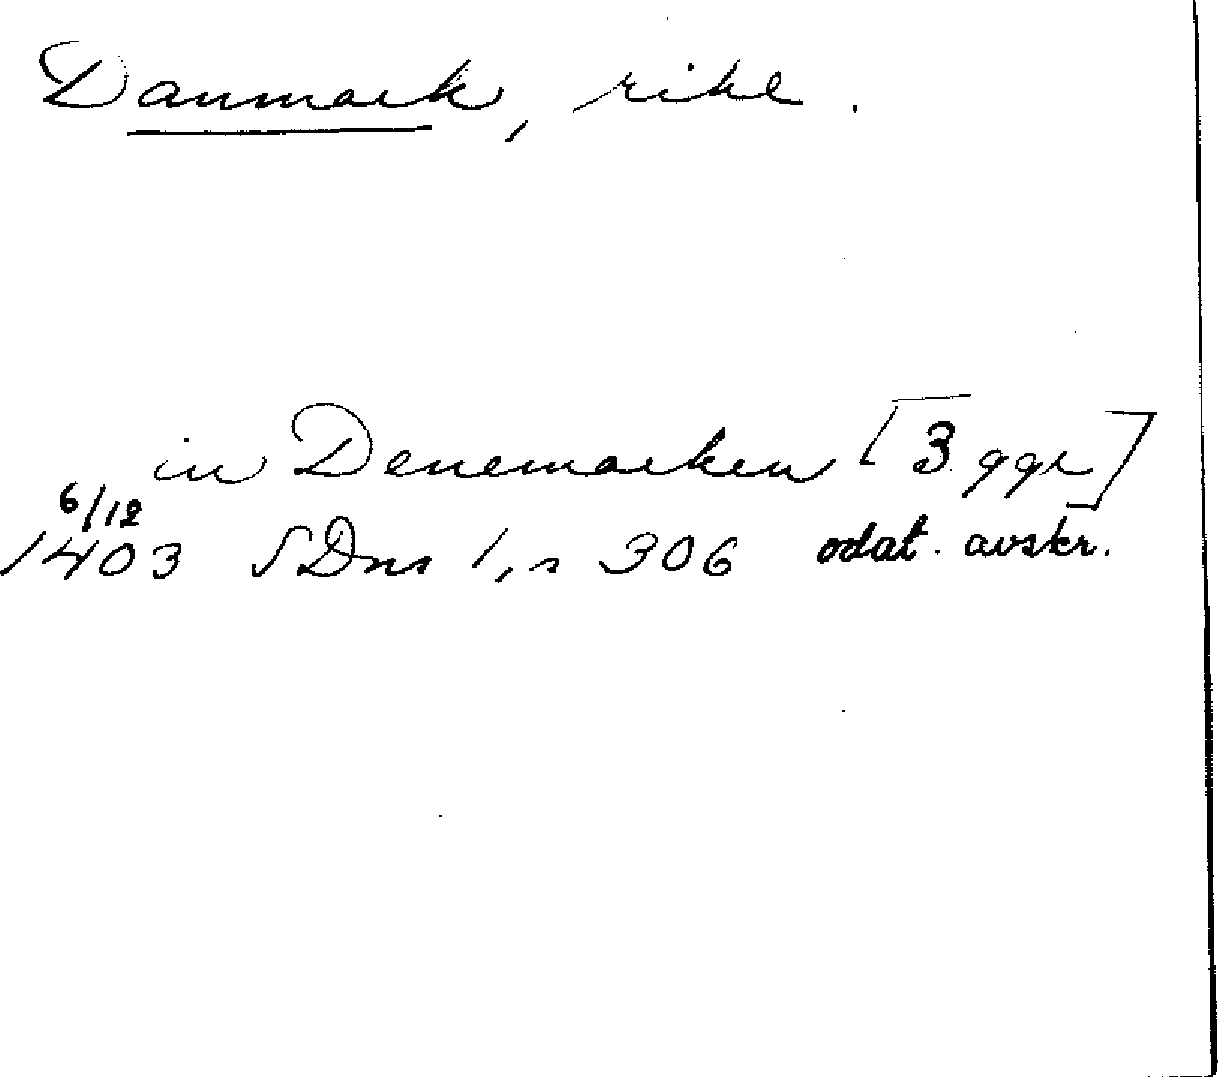 Danmark, rike.
in Denemarken [3 ggr]
6/12
1403 SDns 1, s 306 odat. avskr.